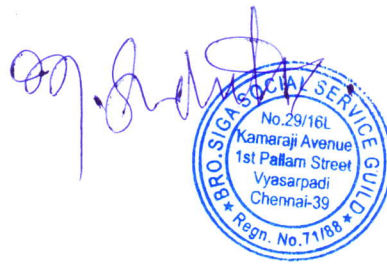 BRO. SIGA SOCIAL SERVICE GUILD
No.29/16L
Kamaraji Avenue
1st Pallam Street
Vyasarpadi
Chennai-39
★ Regn. No.71/88 ★